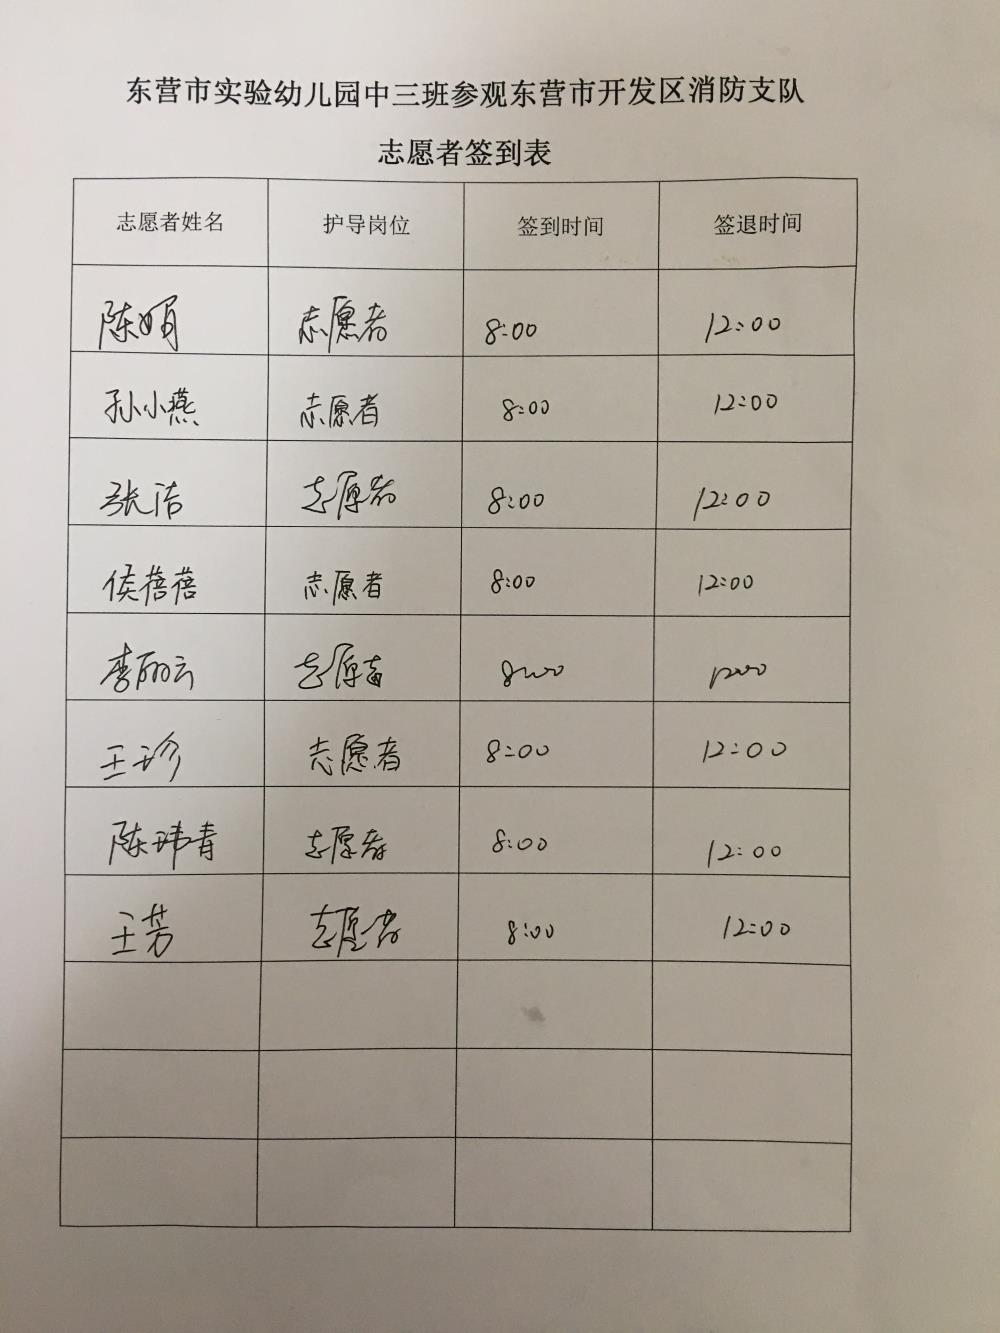 东营市实验幼儿园中三班参观东营市开发区消防支队
志愿者签到表
志愿者姓名 护导岗位 签到时间 签退时间
陈娟 志愿者 8:00 12:00
孙小燕 志愿者 8:00 12:00
张洁 志愿者 8:00 12:00
侯蓓蓓 志愿者 8:00 12:00
李丽云 志愿者 8:00 12:00
王珍 志愿者 8:00 12:00
陈玮青 志愿者 8:00 12:00
王芳 志愿者 8:00 12:00